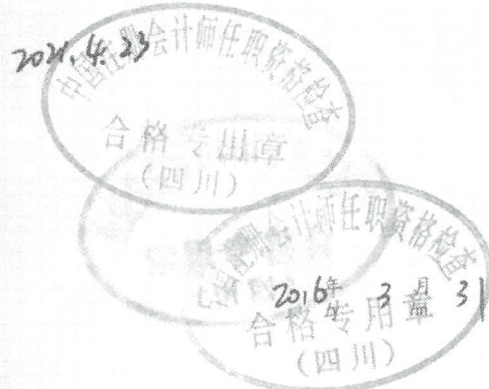 2021.4.23
中国注册会计师任职资格检查
合格专用章
(四川)
注册会计师任职资格检查
2016年 3月 31
合格专用章
(四川)